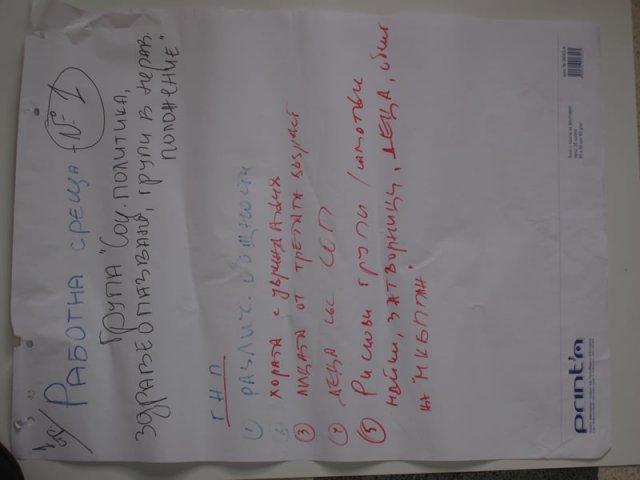 РАБОТНА СРЕЩА - № 1
ГРУПА "СОЦ. ПОЛИТИКА,
ЗДРАВЕОПАЗВАНЕ, ГРУПИ В НЕРАВ.
ПОЛОЖЕНИЕ"
ГНП
① РАЗЛИЧ. ОБЩНОСТИ
② ХОРАТА С УВРЕЖДАНИЯ
③ ЛИЦАТА ОТ ТРЕТАТА ВЪЗРАСТ
④ ДЕЦА СЪС СЕП
⑤ РИСКОВИ ГРУПИ / САМОТНИ
МАЙКИ, ЗАТВОРНИЦИ, ДЕЦА,
НА "МКБППМН"
Print'A